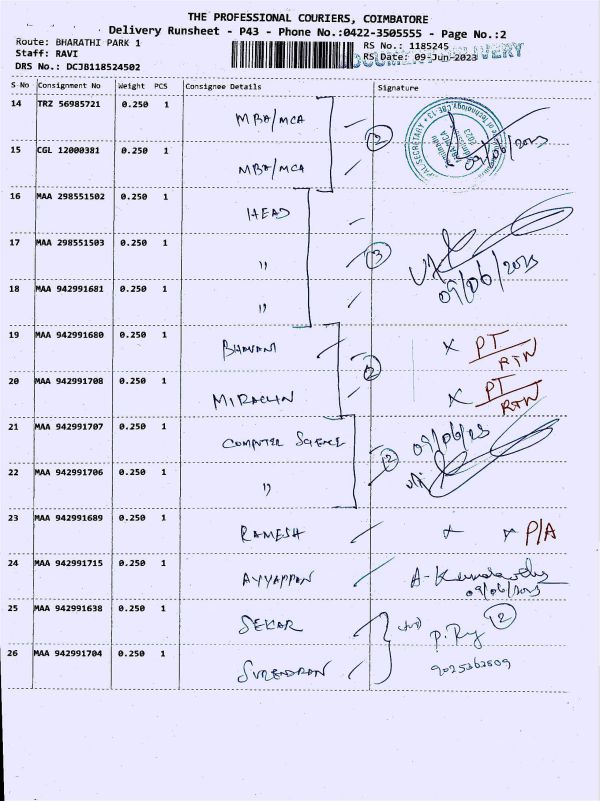 THE PROFESSIONAL COURIERS, COIMBATORE
Delivery Runsheet - P43 - Phone No.:0422-3505555 - Page No.:2
Route: BHARATHI PARK 1
Staff: RAVI
DRS No.: DCJB118524502
RS No.: 1185245
RS Date: 09-Jun-2023
DOCUMENT DELIVERY
S No Consignment No Weight PCS Consignee Details Signature
14 TRZ 56985721 0.250 1 MBA/MCA
2
15 CGL 12000381 0.250 1 MBA/MCA 09/06/2023
16 MAA 298551502 0.250 1 HEAD
17 MAA 298551503 0.250 1 " 3
18 MAA 942991681 0.250 1 " 09/06/2023
19 MAA 942991680 0.250 1 BHAVANI X PT/RTN
2
20 MAA 942991708 0.250 1 MIRACLIN X PT/RTN
21 MAA 942991707 0.250 1 COMPUTER SCIENCE 09/06/23
2
22 MAA 942991706 0.250 1 "
23 MAA 942991689 0.250 1 RAMESH x x P/A
24 MAA 942991715 0.250 1 AYYAPPAN
09/06/2023
25 MAA 942991638 0.250 1 SEKAR P. Ry 2
26 MAA 942991704 0.250 1 SURENDRAN 9025362509